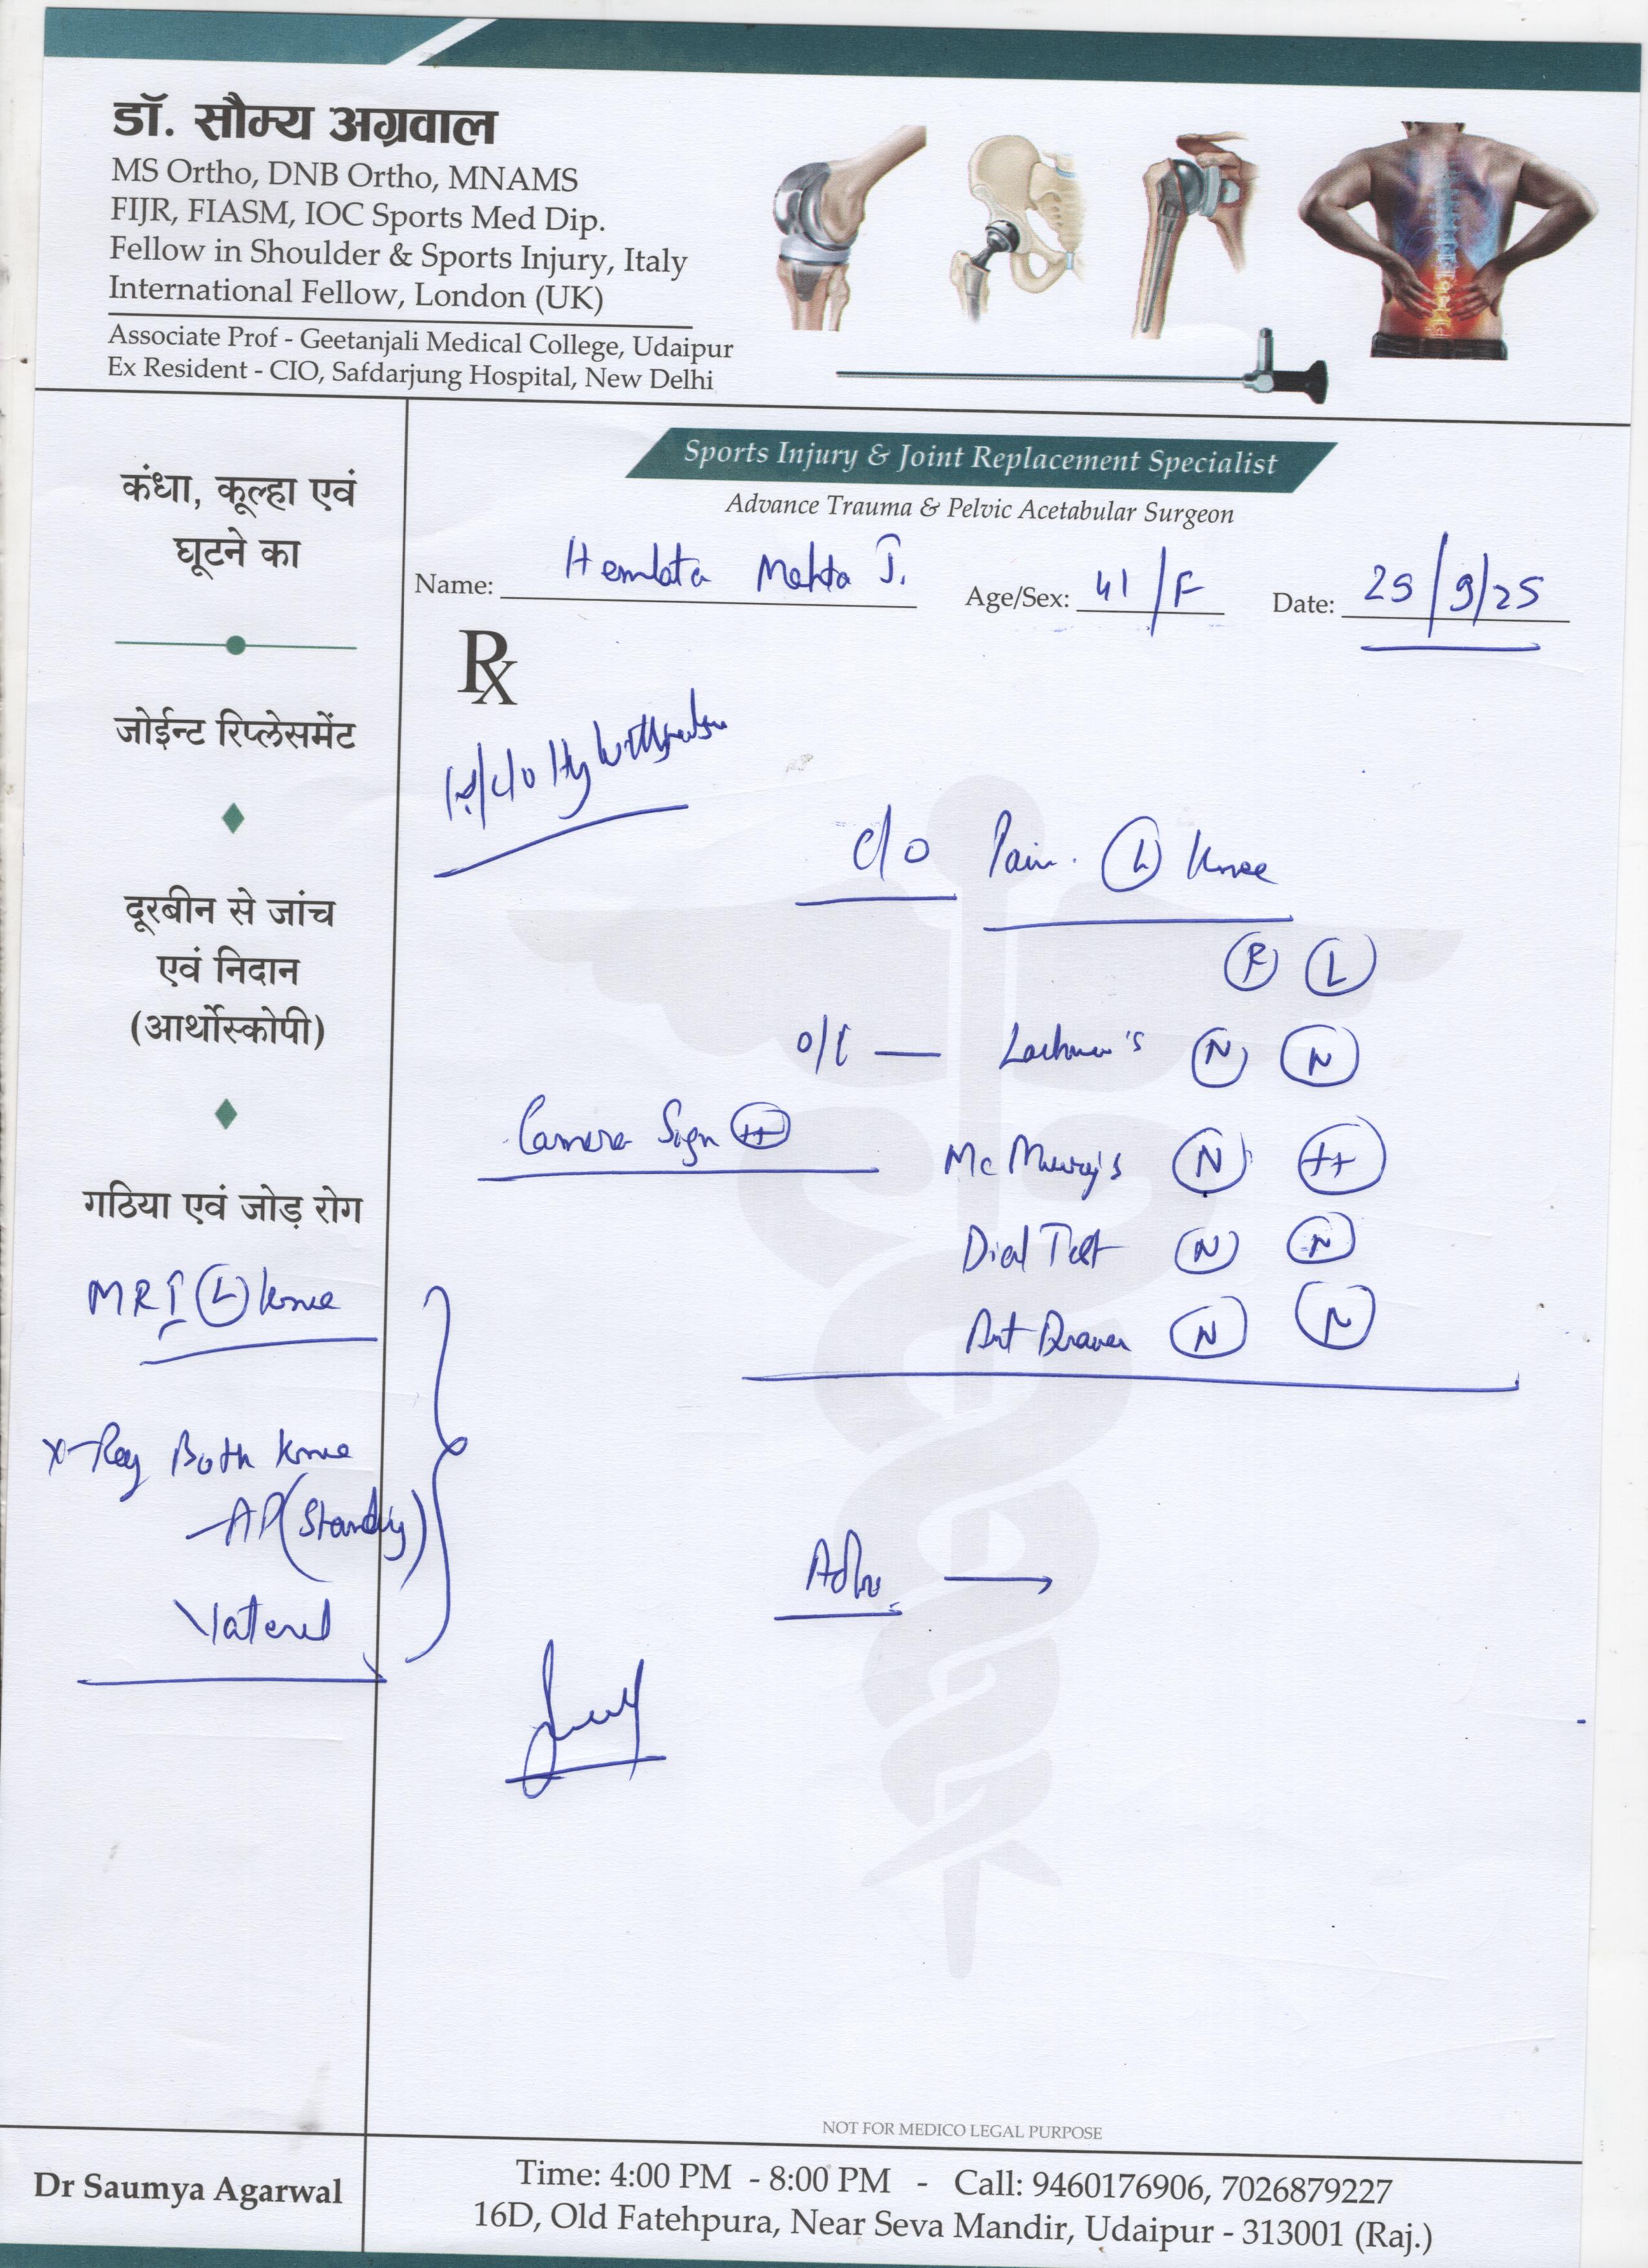 डॉ. सौम्य अग्रवाल
MS Ortho, DNB Ortho, MNAMS
FIJR, FIASM, IOC Sports Med Dip.
Fellow in Shoulder & Sports Injury, Italy
International Fellow, London (UK)
Associate Prof - Geetanjali Medical College, Udaipur
Ex Resident - CIO, Safdarjung Hospital, New Delhi
Sports Injury & Joint Replacement Specialist
Advance Trauma & Pelvic Acetabular Surgeon
Name: Hemlata Mehta J. Age/Sex: 41/F Date: 25/9/25
Rx
c/o Pain. (L) Knee
(R) (L)
o/E — Lachman's (N) (N)
Camera Sign (++)
McMurray's (N) (++)
Dial Test (N) (N)
Ant Drawer (N) (N)
Adv. →
कंधा, कूल्हा एवं
घूटने का
जोईन्ट रिप्लेसमेंट
दूरबीन से जांच
एवं निदान
(आर्थोस्कोपी)
गठिया एवं जोड़ रोग
MRI (L) knee
X-Ray Both knee
AP (Standing)
lateral
NOT FOR MEDICO LEGAL PURPOSE
Dr Saumya Agarwal
Time: 4:00 PM - 8:00 PM - Call: 9460176906, 7026879227
16D, Old Fatehpura, Near Seva Mandir, Udaipur - 313001 (Raj.)